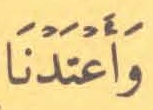 وَأَعْتَدْنَا